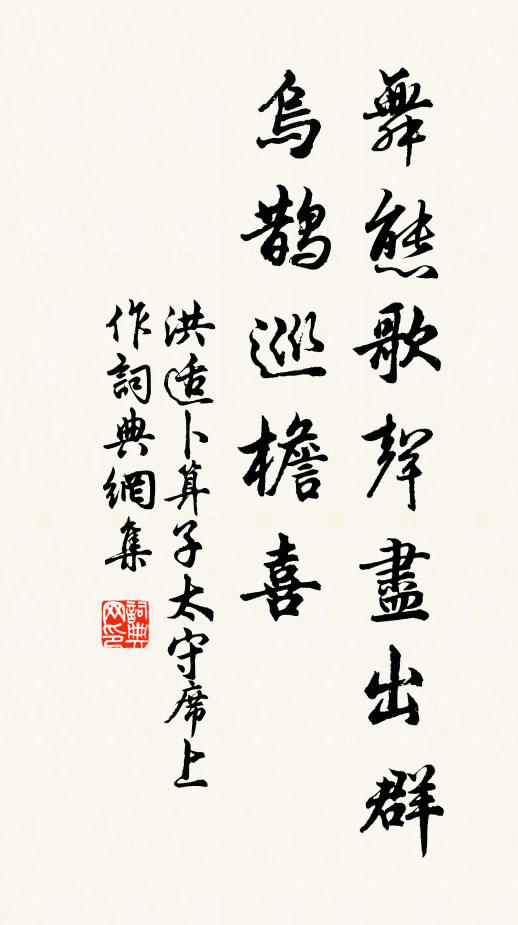 舞態歌聲盡出群
烏鵲巡檐喜
洪适卜算子太守席上
作詞典網集
詞典
网印